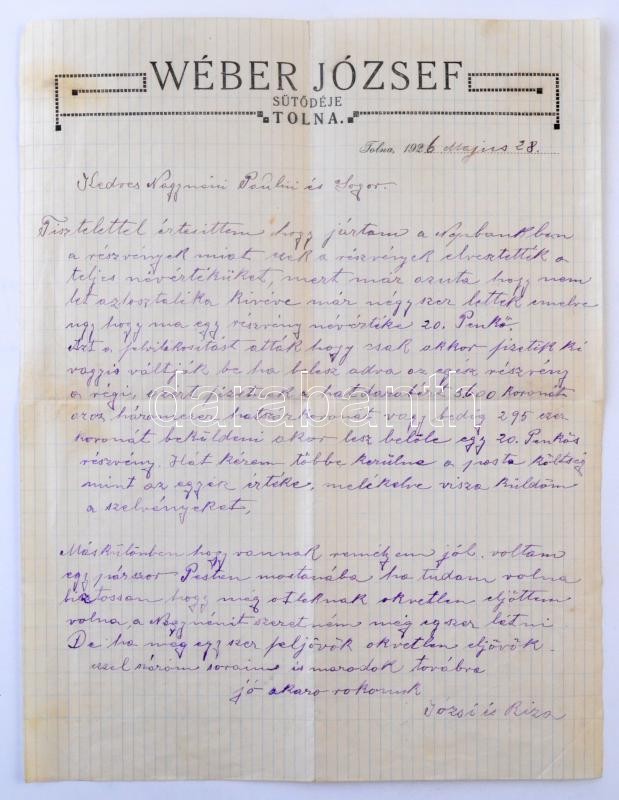 WÉBER JÓZSEF
SÜTŐDÉJE
TOLNA.
Tolna, 1926 Majus 28.
Kedves Nagynéni Paulin és Sogor.
Tisztelettel értesittem hogy jártam a Nepbankban
a részvények miat, ezek a részvények elvesztették a
teljes névértéküket, mert már azuta hogy nem
let osztalék kivéve már négyszer lettek emelve
ugy hogy ma egy részvény névértéke 20. Penkő.
Azt a felvilákositást atták hogy csak akkor fizetik ki
vagyis váltják be ha be lesz adva az egész részvény
a régi, a hat darabért 3600 koronát
azaz háromezer hatszáz koronát vagy pedig 295 ezer
koronát beküldeni akor lesz belöle egy 20. Penkös
részvény. Hát kérem többe kerülne a posta költség
mint az egész értéke, melékelve visza küldöm
a szelvényeket,
darabanth
Máskülömben hogy vannak remélyem jól. voltam
egy párszor Pesten mostanába ha tudam volna
biztossan hogy még otleknak okvetlen eljöttem
volna, a Nagynénit szeretném még egszer látni
De ha még egyszer feljövök okvetlen eljövök.
ezel zárom soraim és maradok továbra
jó akaro rokonuk
Józsi és Riza